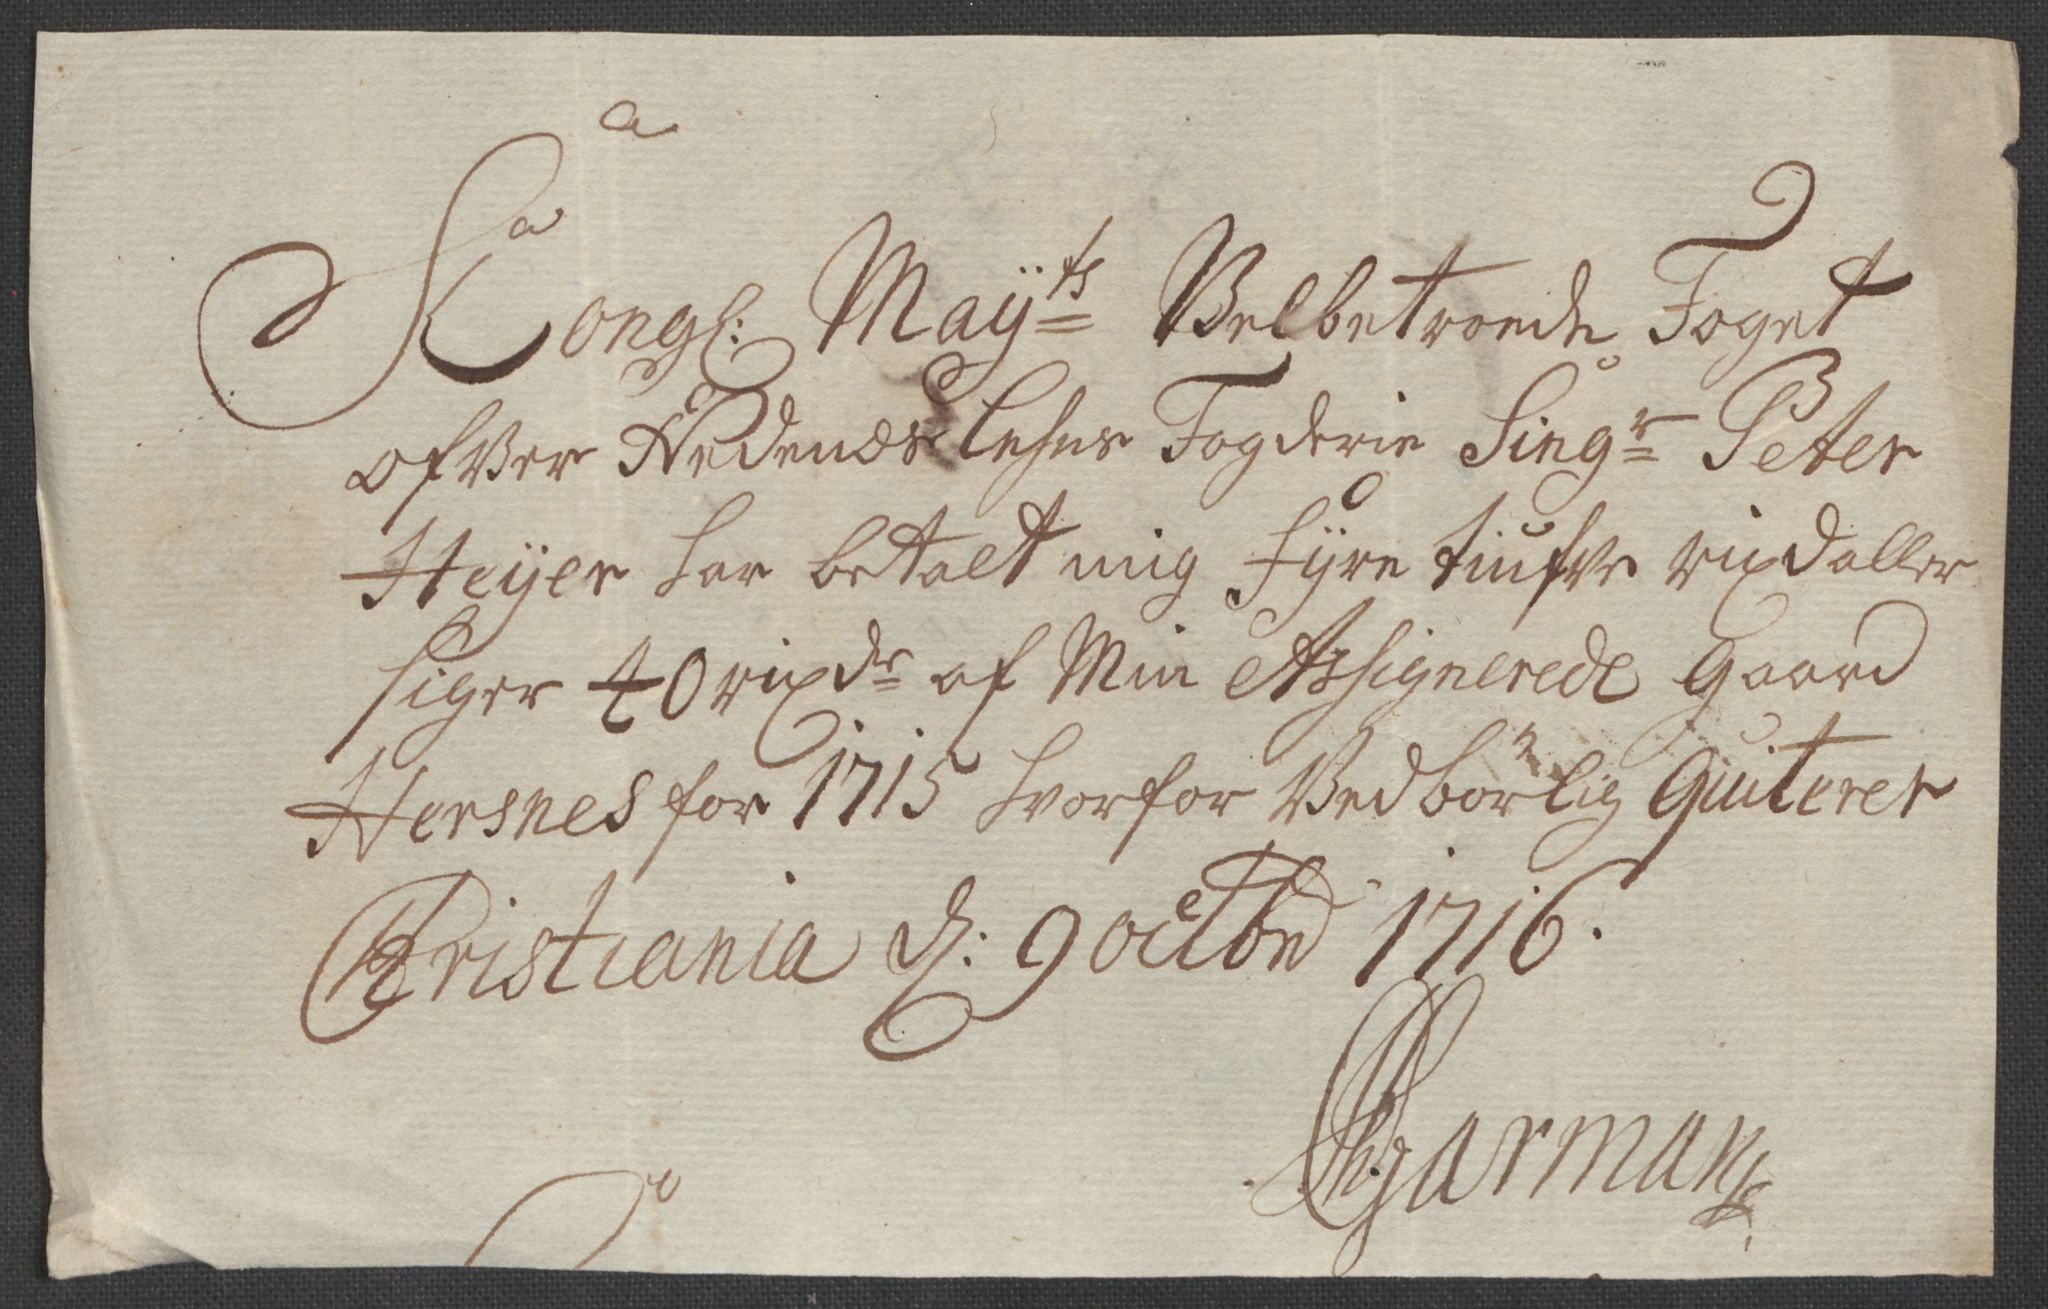 Kongl: Maÿts Velbetroede Foget
ofver Nedenæs Lehns Fogderie Singr Peter
Heÿer har betalt mig fÿre tiufve rixdaller
siger 40 rixdr af Min Assignerede gaard
Hersnes for 1715 hvorfor Vedbörlig quiterer
Christiania d: 9 octbr 1716.
Garman